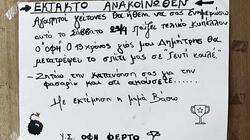 ΕΚΤΑΚΤΟ ΑΝΑΚΟΙΝΩΘΕΝ
Αγαπητοί γείτονες θα ήθελα να σας ενημερώσω
αυτό το Σάββατο παίζει τελικό κυπέλλου
ο ΟΦΗ. Ο 13χρονος γιός μου Δημήτρης θα
μετατρέψει το σπίτι μας σε "Γεντί Κουλέ"
- Ζητάω την κατανόηση σας για την
φασαρία και ότι ακούσετε....
Με εκτίμηση η μαμά Βάσω
Υ.Σ. ΟΦΗ ΦΕΡΤΟ